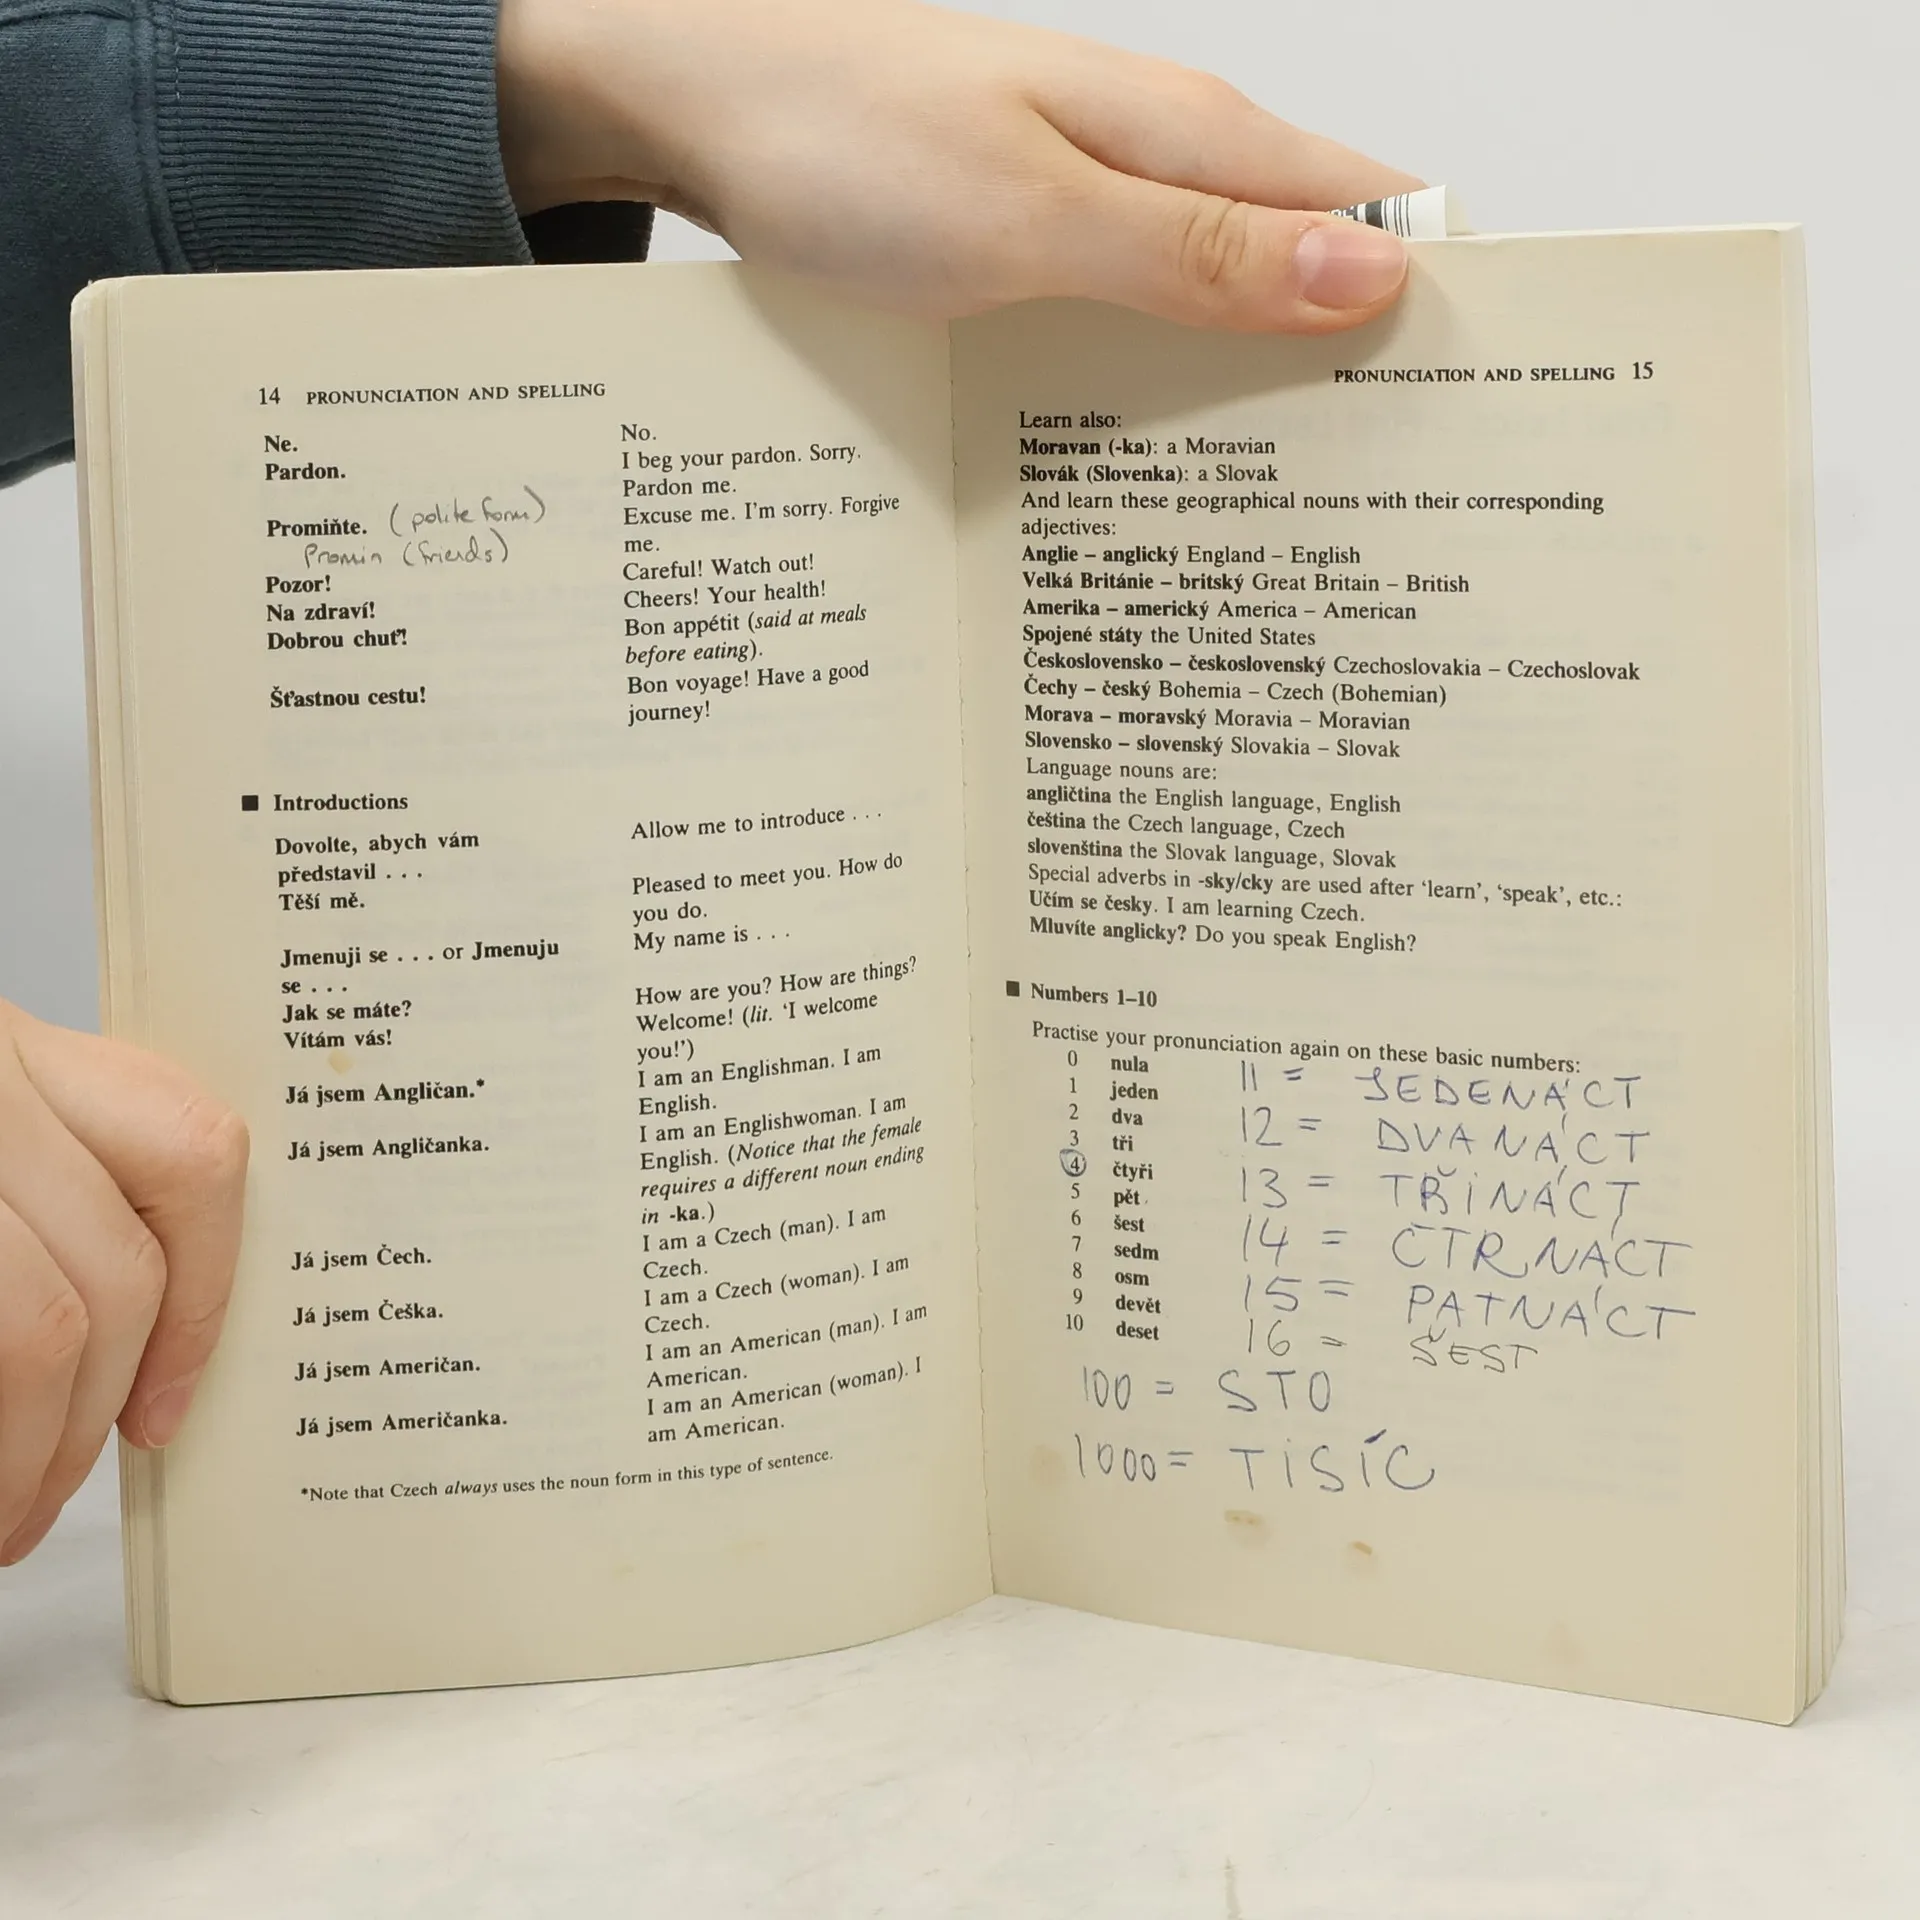 14 PRONUNCIATION AND SPELLING
Ne. No.
Pardon. I beg your pardon. Sorry.
Pardon me.
Promiňte. (polite form) Excuse me. I'm sorry. Forgive
Promin (friends) me.
Pozor! Careful! Watch out!
Na zdraví! Cheers! Your health!
Dobrou chuť! Bon appétit (said at meals
before eating).
Šťastnou cestu! Bon voyage! Have a good
journey!
■ Introductions
Dovolte, abych vám Allow me to introduce . . .
představil . . .
Těší mě. Pleased to meet you. How do
you do.
Jmenuji se . . . or Jmenuju My name is . . .
se . . .
Jak se máte? How are you? How are things?
Vítám vás! Welcome! (lit. ‘I welcome
you!’)
Já jsem Angličan.* I am an Englishman. I am
English.
Já jsem Angličanka. I am an Englishwoman. I am
English. (Notice that the female
requires a different noun ending
in -ka.)
Já jsem Čech. I am a Czech (man). I am
Czech.
Já jsem Češka. I am a Czech (woman). I am
Czech.
Já jsem Američan. I am an American (man). I am
American.
Já jsem Američanka. I am an American (woman). I
am American.
*Note that Czech always uses the noun form in this type of sentence.
PRONUNCIATION AND SPELLING 15
Learn also:
Moravan (-ka): a Moravian
Slovák (Slovenka): a Slovak
And learn these geographical nouns with their corresponding
adjectives:
Anglie – anglický England – English
Velká Británie – britský Great Britain – British
Amerika – americký America – American
Spojené státy the United States
Československo – československý Czechoslovakia – Czechoslovak
Čechy – český Bohemia – Czech (Bohemian)
Morava – moravský Moravia – Moravian
Slovensko – slovenský Slovakia – Slovak
Language nouns are:
angličtina the English language, English
čeština the Czech language, Czech
slovenština the Slovak language, Slovak
Special adverbs in -sky/cky are used after ‘learn’, ‘speak’, etc.:
Učím se česky. I am learning Czech.
Mluvíte anglicky? Do you speak English?
■ Numbers 1–10
Practise your pronunciation again on these basic numbers:
0 nula
1 jeden 11 = JEDENÁCT
2 dva 12 = DVANÁCT
3 tři
4 čtyři 13 = TŘINÁCT
5 pět
6 šest 14 = ČTRNÁCT
7 sedm
8 osm 15 = PATNÁCT
9 devět
10 deset 16 = ŠEST
100 = STO
1000 = TISÍC